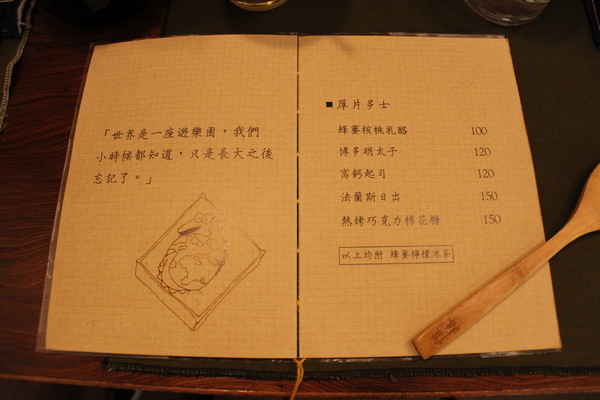 「世界是一座遊樂園，我們
小時候都知道，只是長大之後
忘記了。」
■厚片多士
蜂蜜核桃乳酪 100
博多明太子 120
高鈣起司 120
法蘭斯日出 150
熱烤巧克力棉花糖 150
以上均附 蜂蜜檸檬冰茶